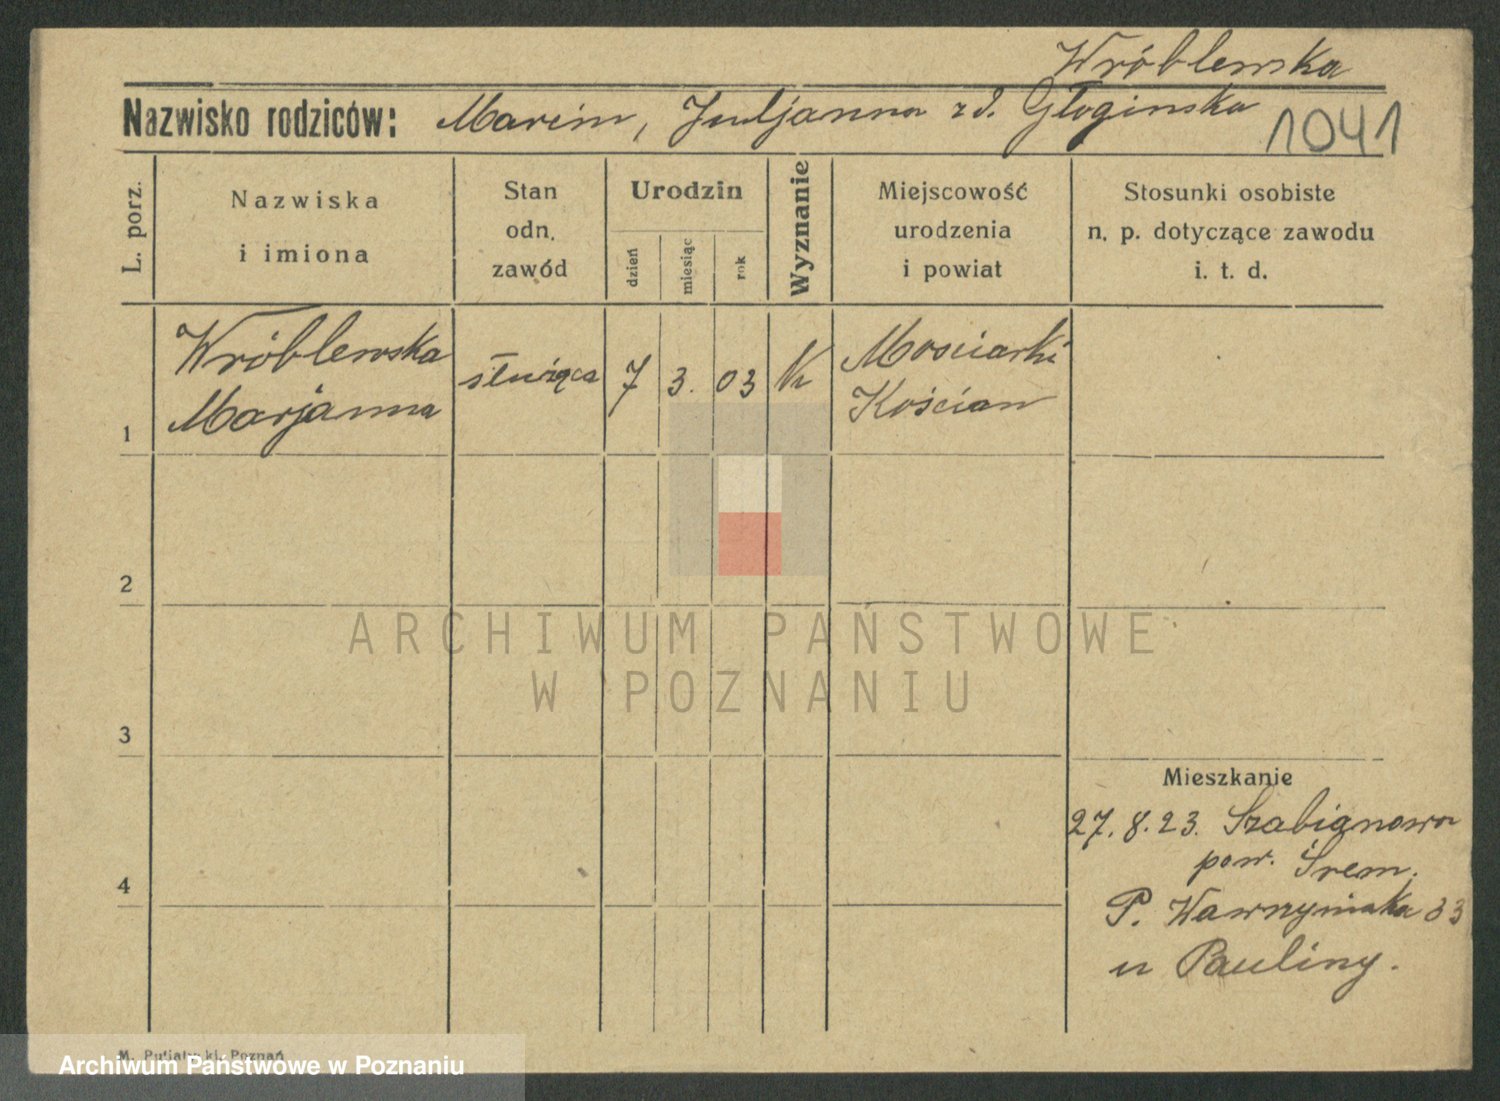 Wróblewska
Nazwisko rodziców: Marcin, Juljanna zd. Głogińska
1041
L. porz.
Nazwiska
i imiona
Stan
odn.
zawód
Urodzin
dzień
miesiąc
rok
Wyznanie
Miejscowość
urodzenia
i powiat
Stosunki osobiste
n. p. dotyczące zawodu
i. t. d.
1
Wróblewska
Marjanna
służąca
7
3.
03
Mościszki
Kościan
2
3
4
ARCHIWUM PAŃSTWOWE
W POZNANIU
Mieszkanie
27. 8. 23. Szabianowo
pow. Śrem.
P. Wawrzyniaka 33
u Pauliny.
M. Putiatycki, Poznań
Archiwum Państwowe w Poznaniu